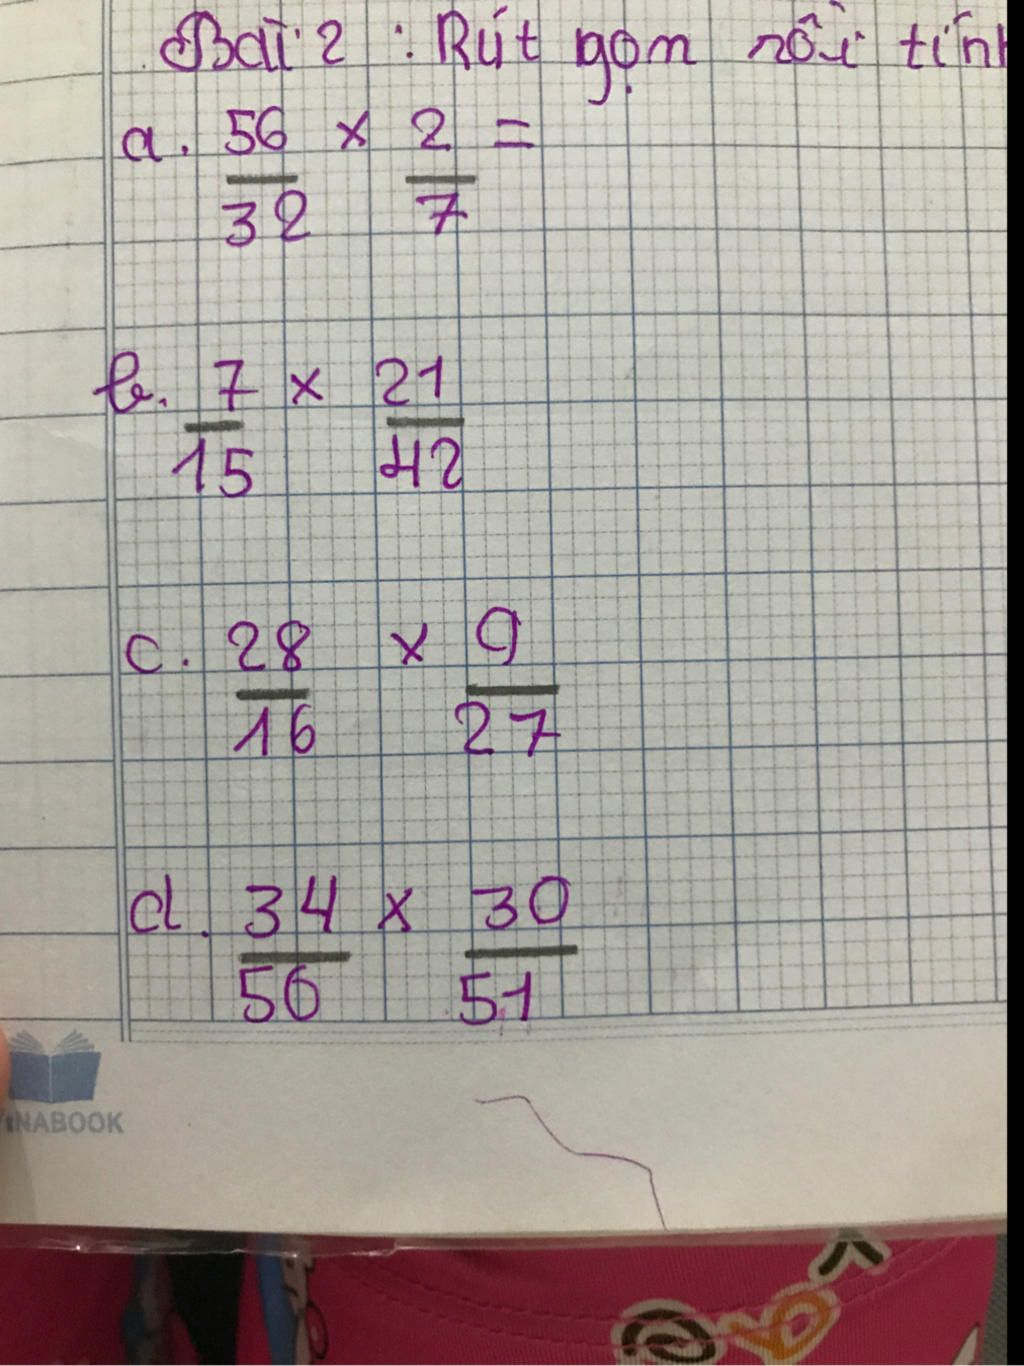 Bài 2 : Rút gọn rồi tính
a. 56/32 x 2/7 =
b. 7/15 x 21/42
c. 28/16 x 9/27
d. 34/56 x 30/51
VINABOOK